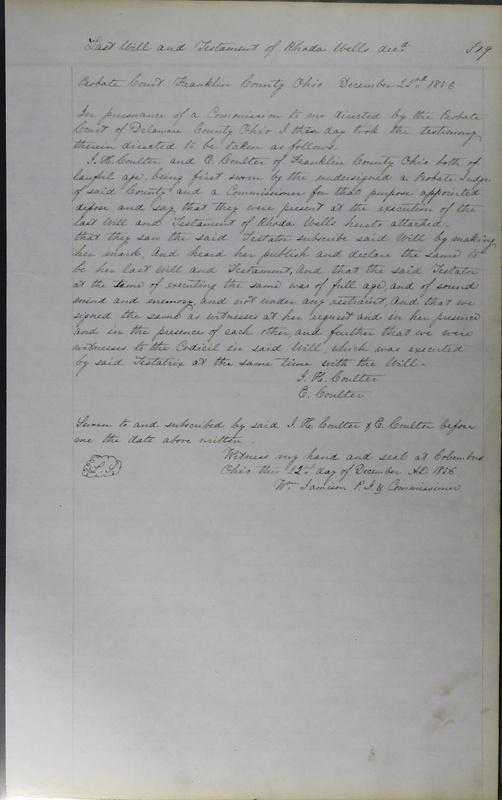 Last Will and Testament of Rhoda Wells decd 519
Probate Court Franklin County Ohio December 22nd 1856
In pursuance of a Commission to me directed by the Probate
Court of Delaware County Ohio I this day took the testimony
therein directed to be taken as follows.
I. H. Coulter and E. Coulter of Franklin County Ohio both of
lawful age, being first sworn by the undersigned a Probate Judge
of said County and a Commissioner for that purpose appointed
depose and say that they were present at the execution of the
last Will and Testament of Rhoda Wells hereto attached.
that they saw the said Testator subscribe said Will by making
her mark, And heard her publish and declare the same to
be her last Will and Testament, And that the said Testator
at the time of executing the same was of full age, and of sound
mind and memory, and not under any restraint, And that we
signed the same as witnesses at her request and in her presence
and in the presence of each other, and further that we were
witnesses to the Codicil in said Will, which was executed
by said Testatrix at the same time with the Will.
I. H. Coulter
E. Coulter
Sworn to and subscribed by said I. H. Coulter & E. Coulter before
me the date above written.
Witness my hand and seal at Columbus
L.S. Ohio this 22nd day of December AD 1856
Wm Jamison P. J. & Commissioner